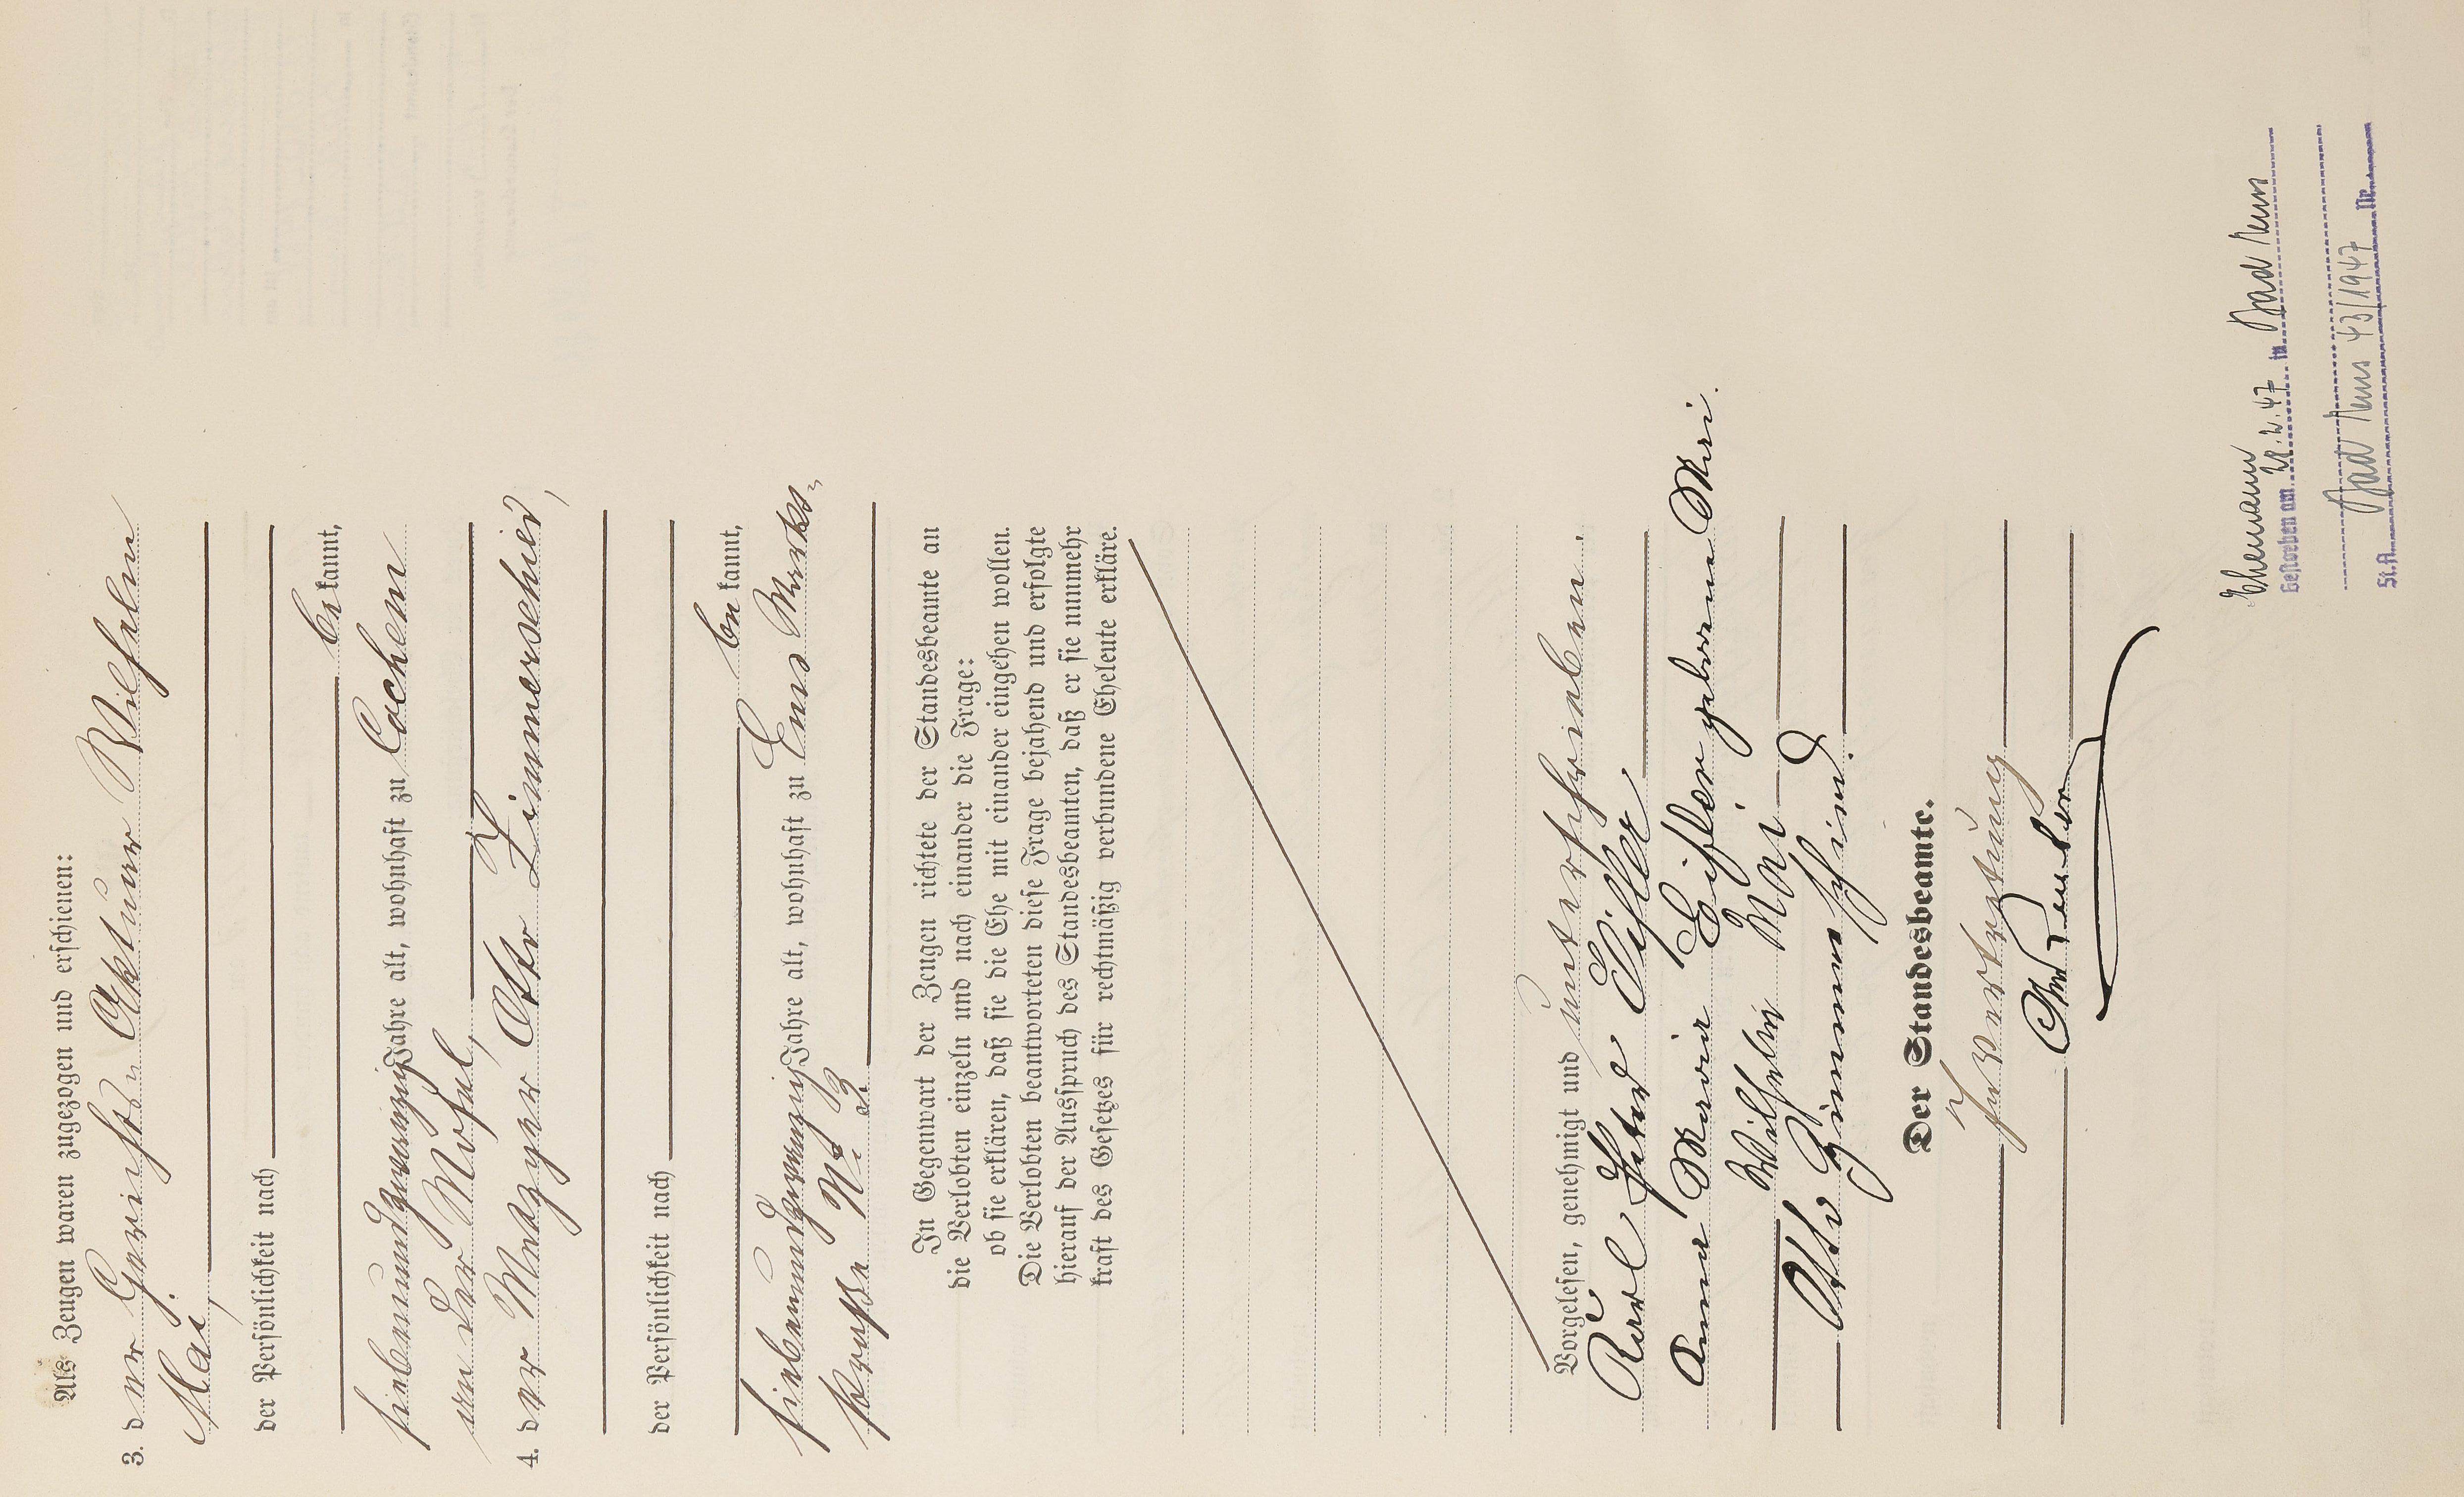 Als Zeugen waren zugezogen und erschienen:
3. der Gerichts-Aktuar Wilhelm
Mai,
der Persönlichkeit nach
bekannt,
siebenundzwanzig Jahre alt, wohnhaft zu Cochem
an der Mosel,
4. der Metzger Otto Zimmerschied,
der Persönlichkeit nach
bekannt,
siebenundzwanzig Jahre alt, wohnhaft zu Ems Markt-
straße No
In Gegenwart der Zeugen richtete der Standesbeamte an
die Verlobten einzeln und nach einander die Frage:
ob sie erklären, daß sie die Ehe mit einander eingehen wollen.
Die Verlobten beantworteten diese Frage bejahend und erfolgte
hierauf der Ausspruch des Standesbeamten, daß er sie nunmehr
kraft des Gesetzes für rechtmäßig verbundene Eheleute erkläre.
Vorgelesen, genehmigt und unterschrieben.
Karl Peter Eisler
Anna Maria Eisler geborene Mai.
Wilhelm Mai
Otto Zimmerschied.
Der Standesbeamte.
In Vertretung
Ehemann
Gestorben am .2.47 in Bad Ems
St.A. Bad Ems 43/1947 Nr.